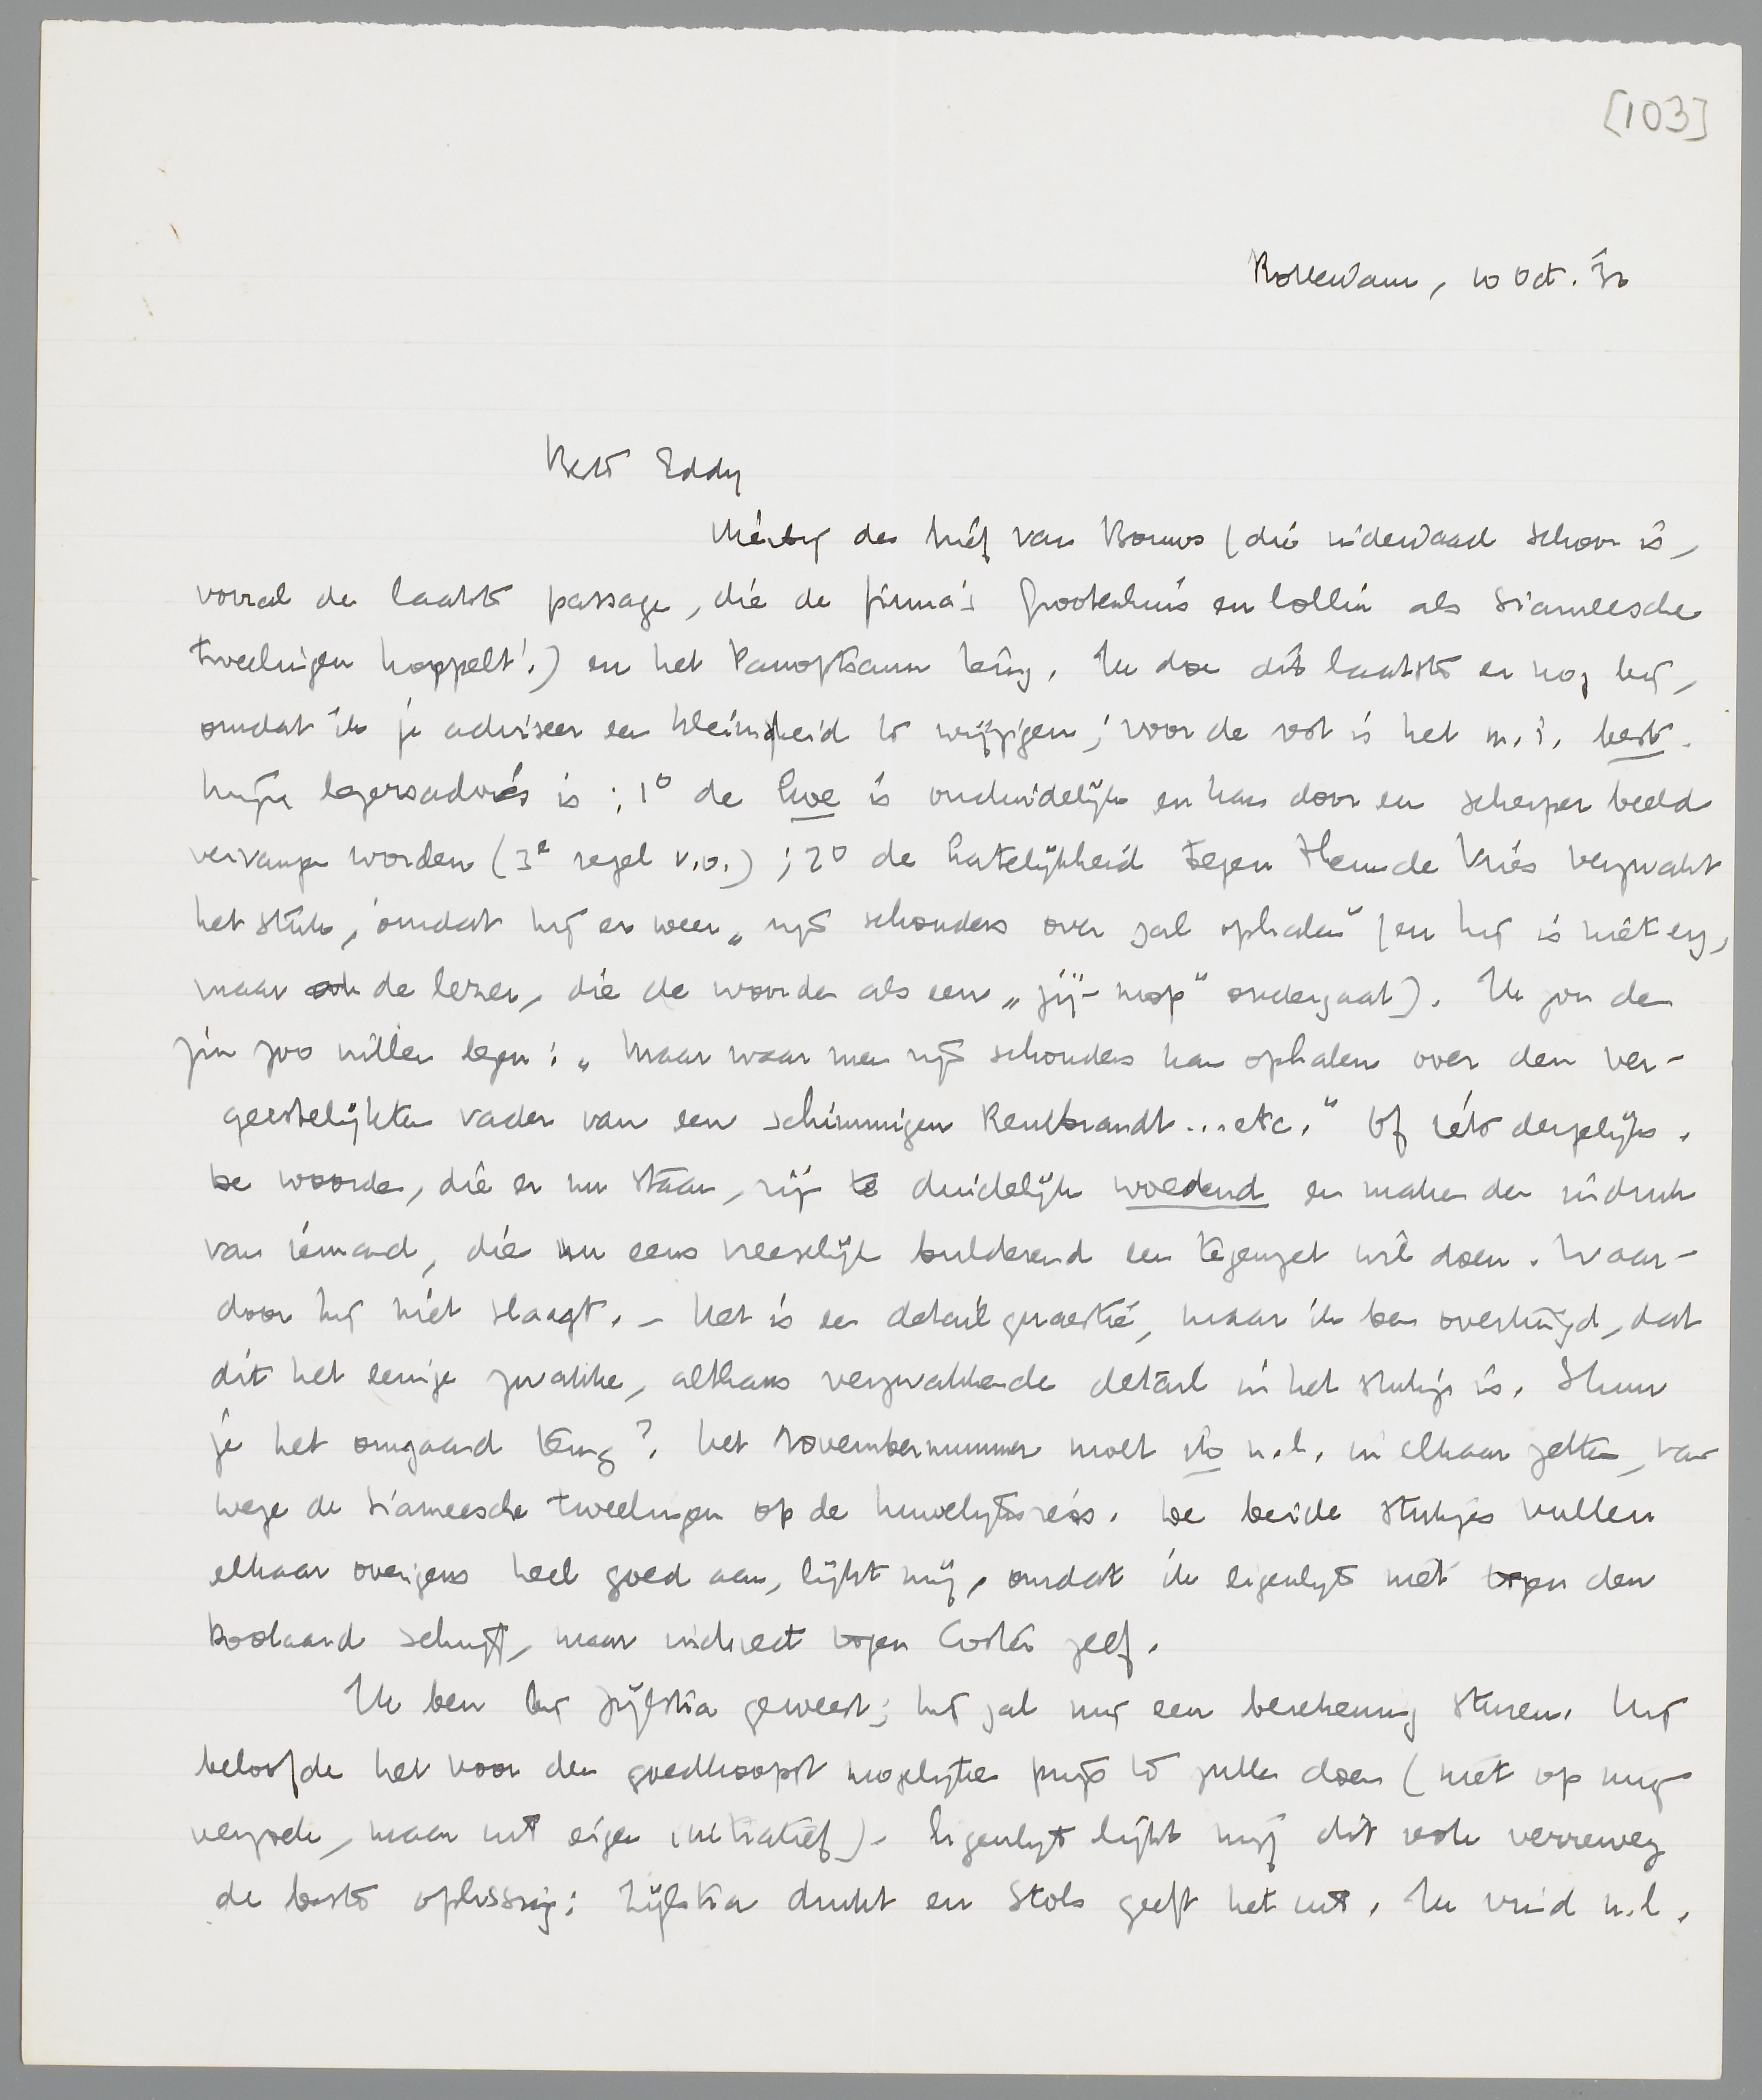 [103]
Rotterdam, 10 Oct. '32
Beste Eddy
Hierbij den brief van Bouws (die inderdaad schoon is,
vooral de laatste passage, die de firma's Grootenhuis en Collin als Siameesche
tweelingen koppelt!) en het Panopticum terug. Ik doe dit laatste er nog bij,
omdat ik je adviseer een kleinigheid te wijzigen; voor de rest is het m.i. best.
Mijn lezersadvies is: 1° de is onduidelijk en kan door een scherper beeld
vervangen worden (3e regel v.o.); 2° de hatelijkheid tegen Hem de Vries verzwakt
het stuk, omdat hij er weer „zijn schouders over zal ophalen" (en hij is niet erg,
maar de lezer, die de woorden als een „jij-mop" ondergaat). Ik zou den
zin zoo willen lezen: „Maar waar men zijn schouders kan ophalen over den ver-
geestelijkten vader van een schimmigen Rembrandt...etc." Of iets dergelijks.
De woorden, die er nu staan, zijn te duidelijk woedend en maken den indruk
van iemand, die nu eens vreeselijk bulderend een tegenzet wil doen. Waar-
door hij niet slaagt. – Het is een detailquaestie, maar ik ben overtuigd, dat
dit het eenige zwakke, althans verzwakkende detail in het stukje is. Stuur
je het omgaand terug? Het Novembernummer moet ik n.l. in elkaar zetten, van-
wege de Siameesche tweelingen op de huwelijksreis. De beide stukjes vullen
elkaar overigens heel goed aan, lijkt mij, omdat ik eigenlijk niet tegen den
Roolaard schrijf, maar indirect tegen Coster zelf.
Ik ben bij Zijlstra geweest; hij zal mij een berekening sturen. Hij
beloofde het voor den goedkoopst mogelijken prijs te zullen doen (niet op mijn
verzoek, maar uit eigen initiatief). Eigenlijk lijkt mij dit ook verreweg
de beste oplossing: Zijlstra drukt en Stols geeft het uit. Ik vind n.l.